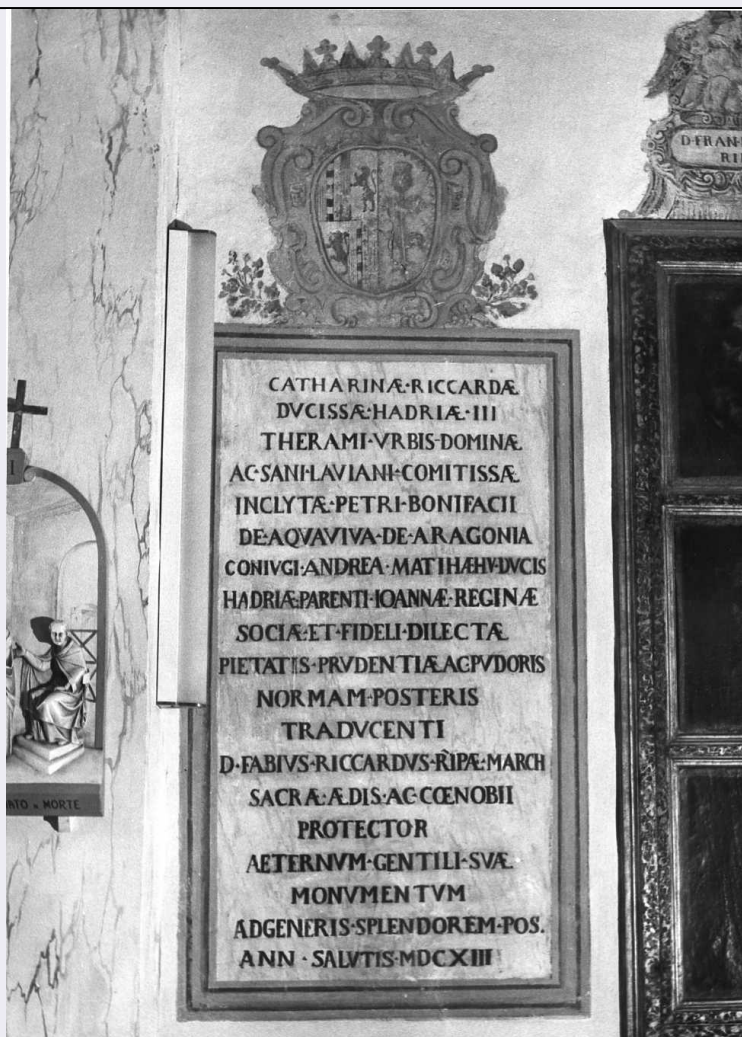 CATHARINÆ·RICCARDÆ
DVCISSÆ·HADRIÆ·III
THERAMI·VRBIS·DOMINÆ
AC·SANI·LAVIANI·COMITISSÆ
INCLYTÆ·PETRI·BONIFACII
DE·AQVAVIVA·DE·ARAGONIA
CONIVGI·ANDREA·MATIHÆHV·DVCIS
HADRIÆ·PARENTI·IOANNÆ·REGINÆ
SOCIÆ·ET·FIDELI·DILECTÆ
PIETATIS·PRVDENTIÆAC·PVDORIS
NORMAM·POSTERIS
TRADVCENTI
D·FABIVS·RICCARDVS·RIPÆ·MARCH
SACRÆ·ÆDIS·AC·CŒNOBII
PROTECTOR
AETERNVM·GENTILI·SVÆ
MONVMENTVM
ADGENERIS·SPLENDOREM·POS.
ANN·SALVTIS·MDCXIII
D·FRAN
RI
I
ATO A MORTE